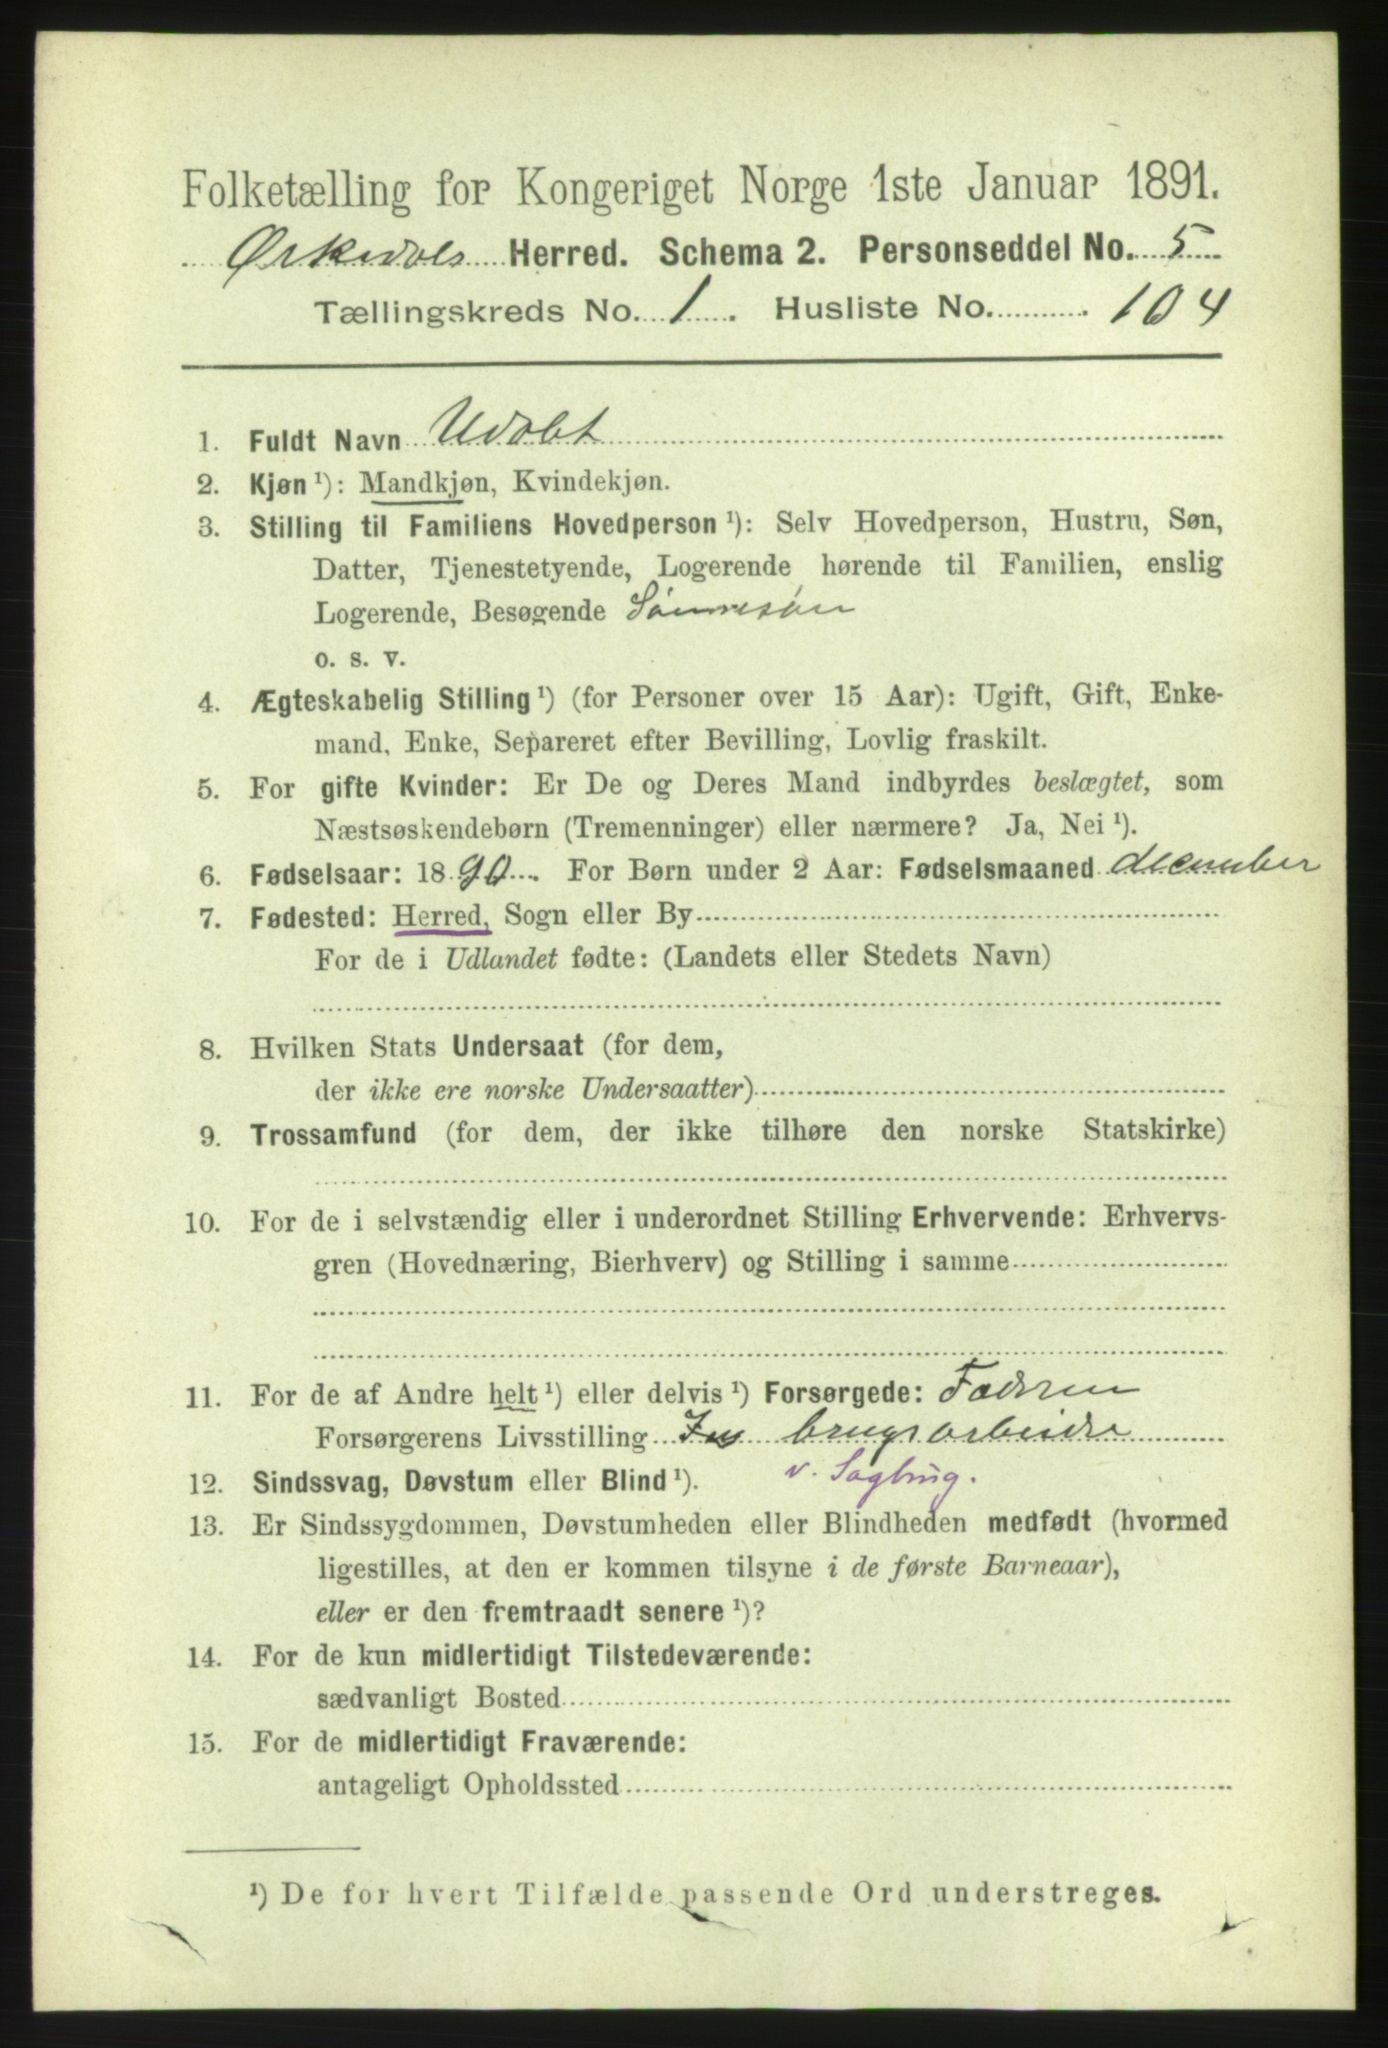 Folketælling for Kongeriget Norge 1ste Januar 1891.
Ørkedals Herred. Schema 2. Personseddel No. 5
Tællingskreds No. 1. Husliste No. 104
1. Fuldt Navn Udøbt
2. Kjøn ¹): Mandkjøn, Kvindekjøn.
3. Stilling til Familiens Hovedperson ¹): Selv Hovedperson, Hustru, Søn,
Datter, Tjenestetyende, Logerende hørende til Familien, enslig
Logerende, Besøgende Sønnesøn
o. s. v.
4. Ægteskabelig Stilling ¹) (for Personer over 15 Aar): Ugift, Gift, Enke-
mand, Enke, Separeret efter Bevilling, Lovlig fraskilt.
5. For gifte Kvinder: Er De og Deres Mand indbyrdes beslægtet, som
Næstsøskendebørn (Tremenninger) eller nærmere? Ja, Nei ¹).
6. Fødselsaar: 1890. For Børn under 2 Aar: Fødselsmaaned december
7. Fødested: Herred, Sogn eller By
For de i Udlandet fødte: (Landets eller Stedets Navn)
8. Hvilken Stats Undersaat (for dem,
der ikke ere norske Undersaatter)
9. Trossamfund (for dem, der ikke tilhøre den norske Statskirke)
10. For de i selvstændig eller i underordnet Stilling Erhvervende: Erhvervs-
gren (Hovednæring, Bierhverv) og Stilling i samme
11. For de af Andre helt ¹) eller delvis ¹) Forsørgede: Faderen
Forsørgerens Livsstilling brugsarbeider
12. Sindssvag, Døvstum eller Blind ¹). v. Sagbrug.
13. Er Sindssygdommen, Døvstumheden eller Blindheden medfødt (hvormed
ligestilles, at den er kommen tilsyne i de første Barneaar),
eller er den fremtraadt senere ¹)?
14. For de kun midlertidigt Tilstedeværende:
sædvanligt Bosted
15. For de midlertidigt Fraværende:
antageligt Opholdssted
¹) De for hvert Tilfælde passende Ord understreges.